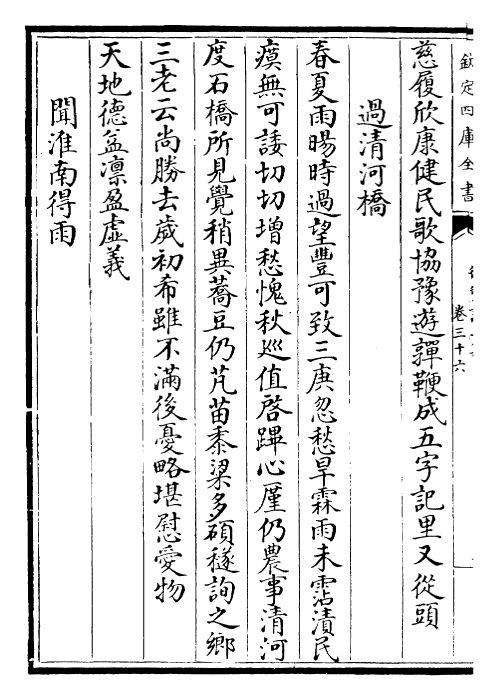 欽定四庫全書
卷三十六
慈履欣康健民歌協豫遊嚲鞭成五字記里又從頭
過清河橋
春夏雨暘時過望豐可致三庚忽愁旱霖雨未霑漬民
瘼無可諉切切增愁愧秋廵值啓蹕心廑仍農事清河
度石橋所見覺稍異蕎豆仍芃苗黍梁多碩穟詢之鄉
三老云尚勝去歲初希雖不滿後憂略堪慰愛物
天地德盆凛盈虛義
聞淮南得雨